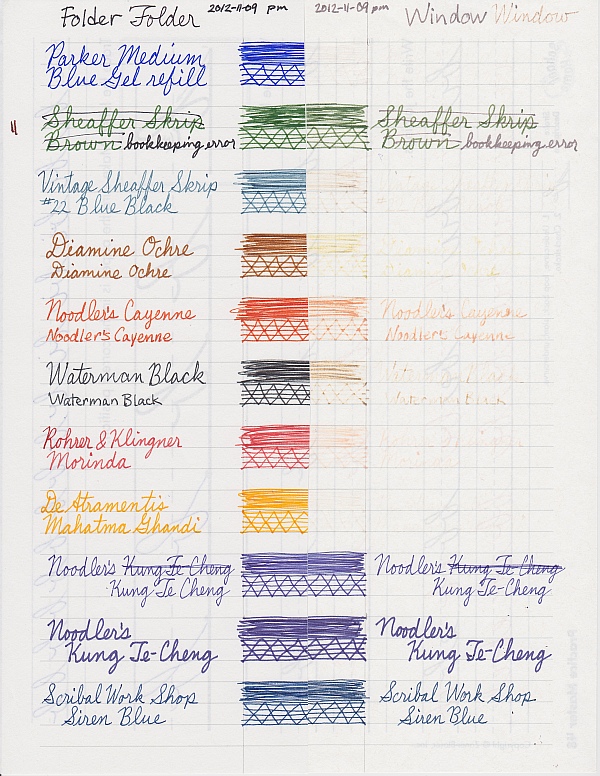 Folder Folder 2012-11-09 pm 2012-11-09 pm Window Window
Parker Medium
Blue Gel refill
Sheaffer Skrip Sheaffer Skrip
Brown bookkeeping error Brown bookkeeping error
Vintage Sheaffer Skrip
#22 Blue Black
Diamine Ochre
Diamine Ochre
Noodler's Cayenne Noodler's Cayenne
Noodler's Cayenne Noodler's Cayenne
Waterman Black
Waterman Black
Rohrer & Klingner
Morinda
De Atramentis
Mahatma Ghandi
Noodler's Kung Te-Cheng Noodler's Kung Te-Cheng
Kung Te Cheng Kung Te-Cheng
Noodler's Noodler's
Kung Te-Cheng Kung Te-Cheng
Scribal Work Shop Scribal Work Shop
Siren Blue Siren Blue